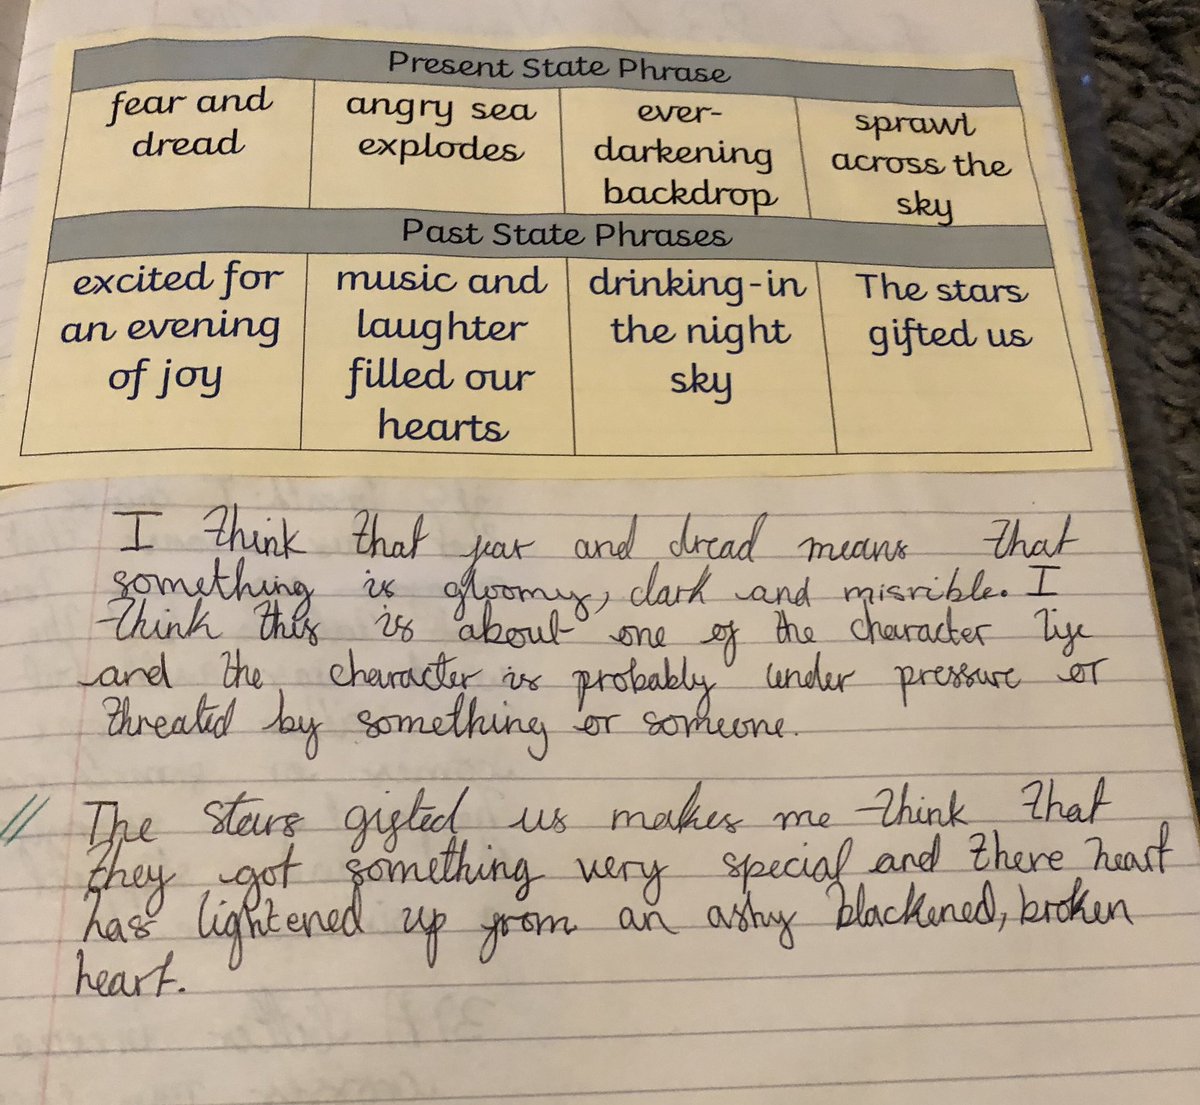 Present State Phrase
fear and dread
angry sea explodes
ever-darkening backdrop
sprawl across the sky
Past State Phrases
excited for an evening of joy
music and laughter filled our hearts
drinking-in the night sky
The stars gifted us
I think that fear and dread means that
something is gloomy, dark and misrible. I
think this is about one of the character life
and the character is probably under pressure or
threated by something or someone.
// The stars gifted us makes me think that
they got something very special and there heart
has lightened up from an ashy blackened, broken
heart.